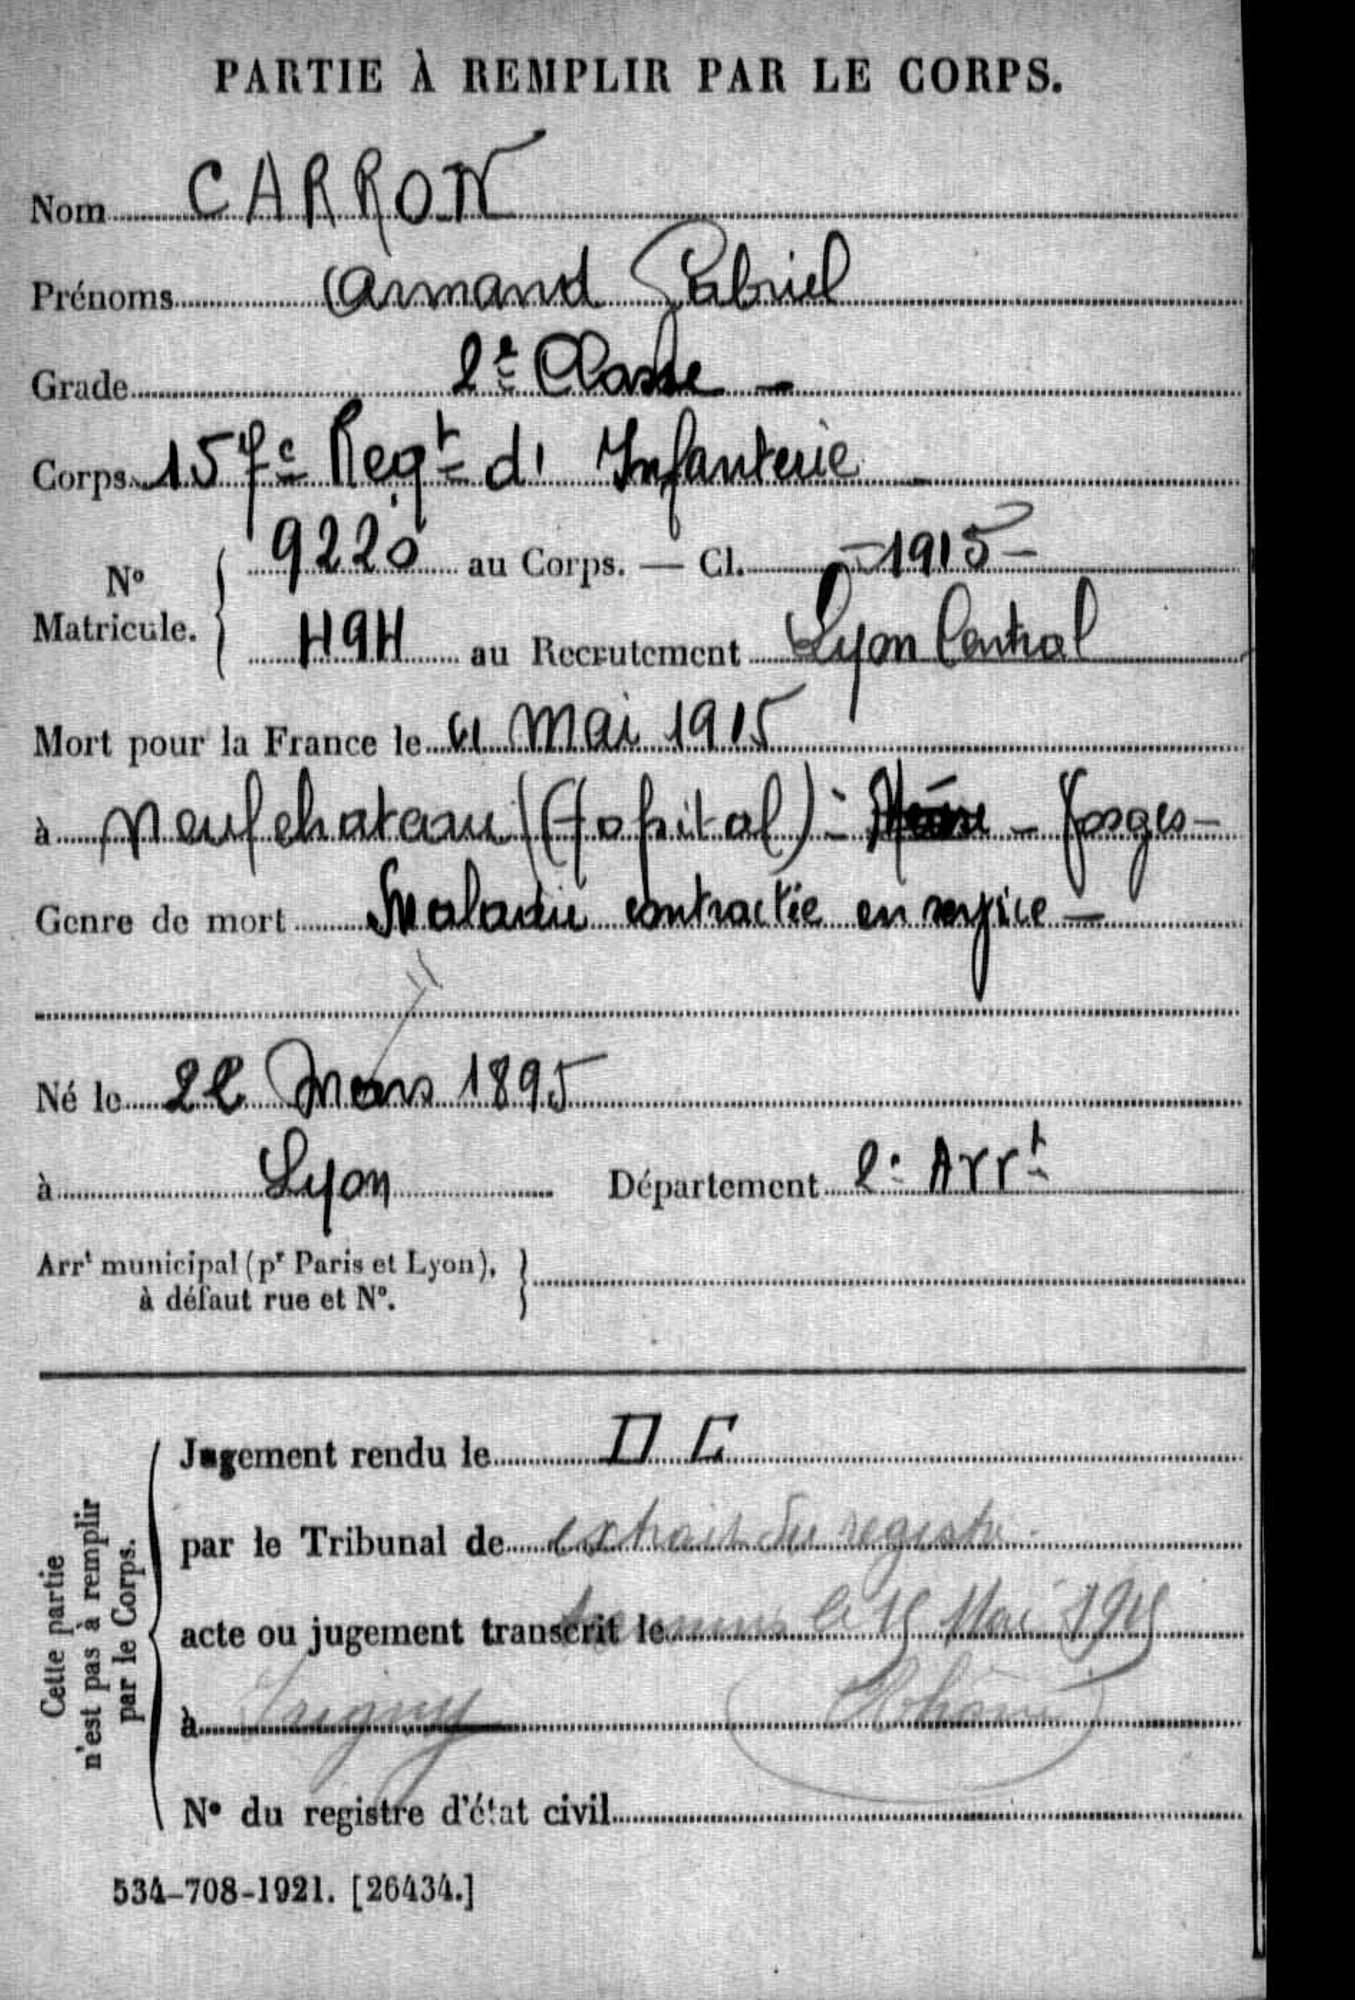 PARTIE À REMPLIR PAR LE CORPS.
Nom CARRON
Prénoms Armand Gabriel
Grade 2e Classe -
Corps 157e Regt d' Infanterie
N° Matricule. { 9220 au Corps. — Cl. - 1915 -
494 au Recrutement Lyon Central
Mort pour la France le 11 Mai 1915
à Neufchateau (Hopital) - - Vosges -
Genre de mort Maladie contractée en service -
Né le 22 Mars 1895
à Lyon Département 2e Arrt
Arrt municipal (pr Paris et Lyon), à défaut rue et N°. }
Cette partie n'est pas à remplir par le Corps.
Jugement rendu le D C
par le Tribunal de extrait du registre
acte ou jugement transcrit le le 15 Mai 1915
à Irigny (Rhône)
N° du registre d'état civil
534-708-1921. [26434.]